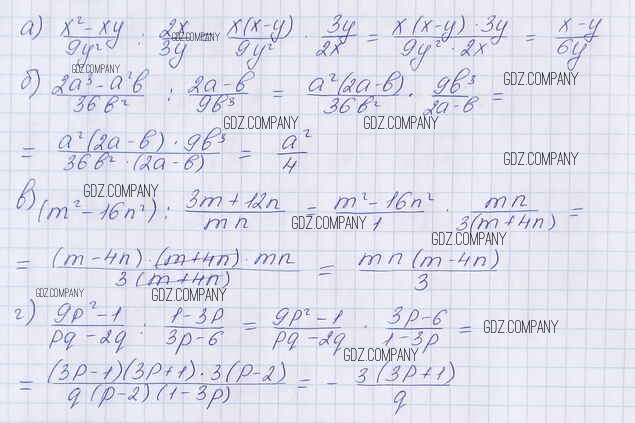 а) (x² - xy)/(9y²) : 2x/3y = x(x-y)/(9y²) · 3y/2x = (x(x-y)·3y)/(9y²·2x) = (x-y)/(6y)
GDZ.COMPANY
GDZ.COMPANY
б) (2a³ - a²b)/(36b²) : (2a-b)/(9b³) = a²(2a-b)/(36b²) · 9b³/(2a-b) = GDZ.COMPANY
GDZ.COMPANY GDZ.COMPANY
= (a²(2a-b)·9b³)/(36b²·(2a-b)) = a²/4 GDZ.COMPANY
GDZ.COMPANY
в) (m² - 16n²) : (3m + 12n)/(mn) = (m² - 16n²)/1 · mn/(3(m+4n)) =
GDZ.COMPANY
GDZ.COMPANY
= ((m-4n)·(m+4n)·mn)/(3(m+4n)) = (mn(m-4n))/3
GDZ.COMPANY GDZ.COMPANY
г) (9p² - 1)/(pq - 2q) : (1-3p)/(3p-6) = (9p² - 1)/(pq - 2q) · (3p-6)/(1-3p) = GDZ.COMPANY
GDZ.COMPANY
= ((3p-1)(3p+1)·3(p-2))/(q(p-2)(1-3p)) = - (3(3p+1))/q